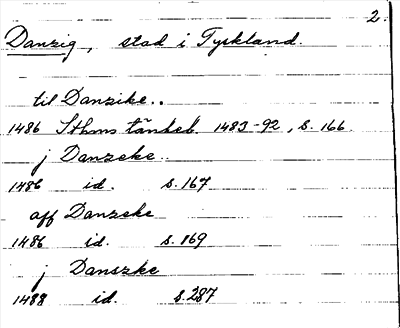 2.
Danzig, stad i Tyskland.
til Danzike..
1486 Sthms tänkeb. 1483-92, s. 166.
j Danzeke..
1486 id. s. 167
aff Danzeke
1486 id. s. 169
j Danszke
1488 id. s. 287